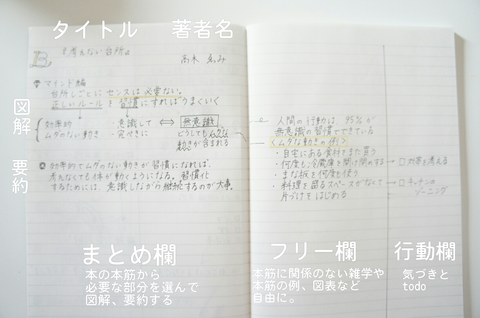 タイトル 著者名
『考えない台所』
高木 えみ
マインド編
台所しごとに センスは必要ない。
正しいルール を 習慣にすればうまくいく
図解
効率的
ムダのない動き
・意識して
・完ぺきに
⇔ 無意識
どうしてもムダな
動きが含まれる
要約
効率的でムダのない動きが習慣になれば、
考えなくても体が動くようになる。習慣化
するためには、意識しながら継続するのが大事。
人間の行動は、95%が
無意識の習慣でできている
<ムダな動きの例>
・自宅にある食材をまた買う
・何度も冷蔵庫を開け閉めする → □効率を考える
・まな板を何度も洗う
・料理を盛るスペースがなくて → □キッチンの
片づけをはじめる
ゾーニング
まとめ欄
本の本筋から
必要な部分を選んで
図解、要約する
フリー欄
本筋に関係のない雑学や
本筋の例、図表など
自由に。
行動欄
気づきと
todo